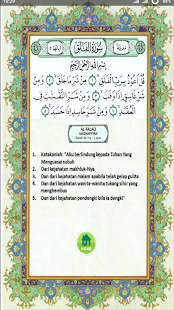 16:29
سُورَةُ الْفَلَقِ
بِسْمِ اللَّهِ الرَّحْمَٰنِ الرَّحِيمِ
قُلْ أَعُوذُ بِرَبِّ الْفَلَقِ مِن شَرِّ مَا خَلَقَ وَمِن
شَرِّ غَاسِقٍ إِذَا وَقَبَ وَمِن شَرِّ النَّفَّٰثَٰتِ فِي
الْعُقَدِ وَمِن شَرِّ حَاسِدٍ إِذَا حَسَدَ
AL-FALAQ
1. Katakanlah: "Aku berlindung kepada Tuhan Yang Menguasai subuh
2. Dari kejahatan makhluk-Nya
3. Dan dari kejahatan malam apabila telah gelap gulita
4. Dan dari kejahatan wanita-wanita tukang sihir yang menghembus
5. Dan dari kejahatan pendengki bila ia dengki"